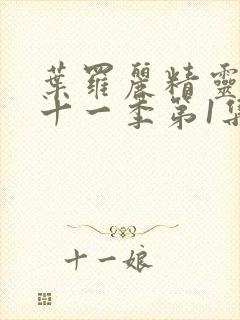 葉羅麗精靈
十一季第1集
十一娘